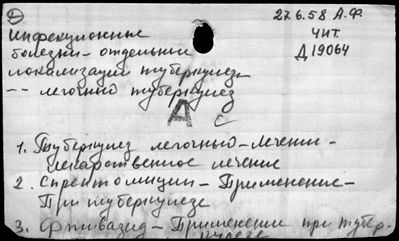 27.6.58 А.Ф.
Инфекционные
чит.
болезни - отдельные
Д19064
локализации туберкулез
-- легочный туберкулез
А
С
1. Туберкулез легочный - Лечение -
Лекарственное лечение
2. Стрептомицин - Применение -
При туберкулезе
3. Фтивазид - Применение при тубер-
кулезе